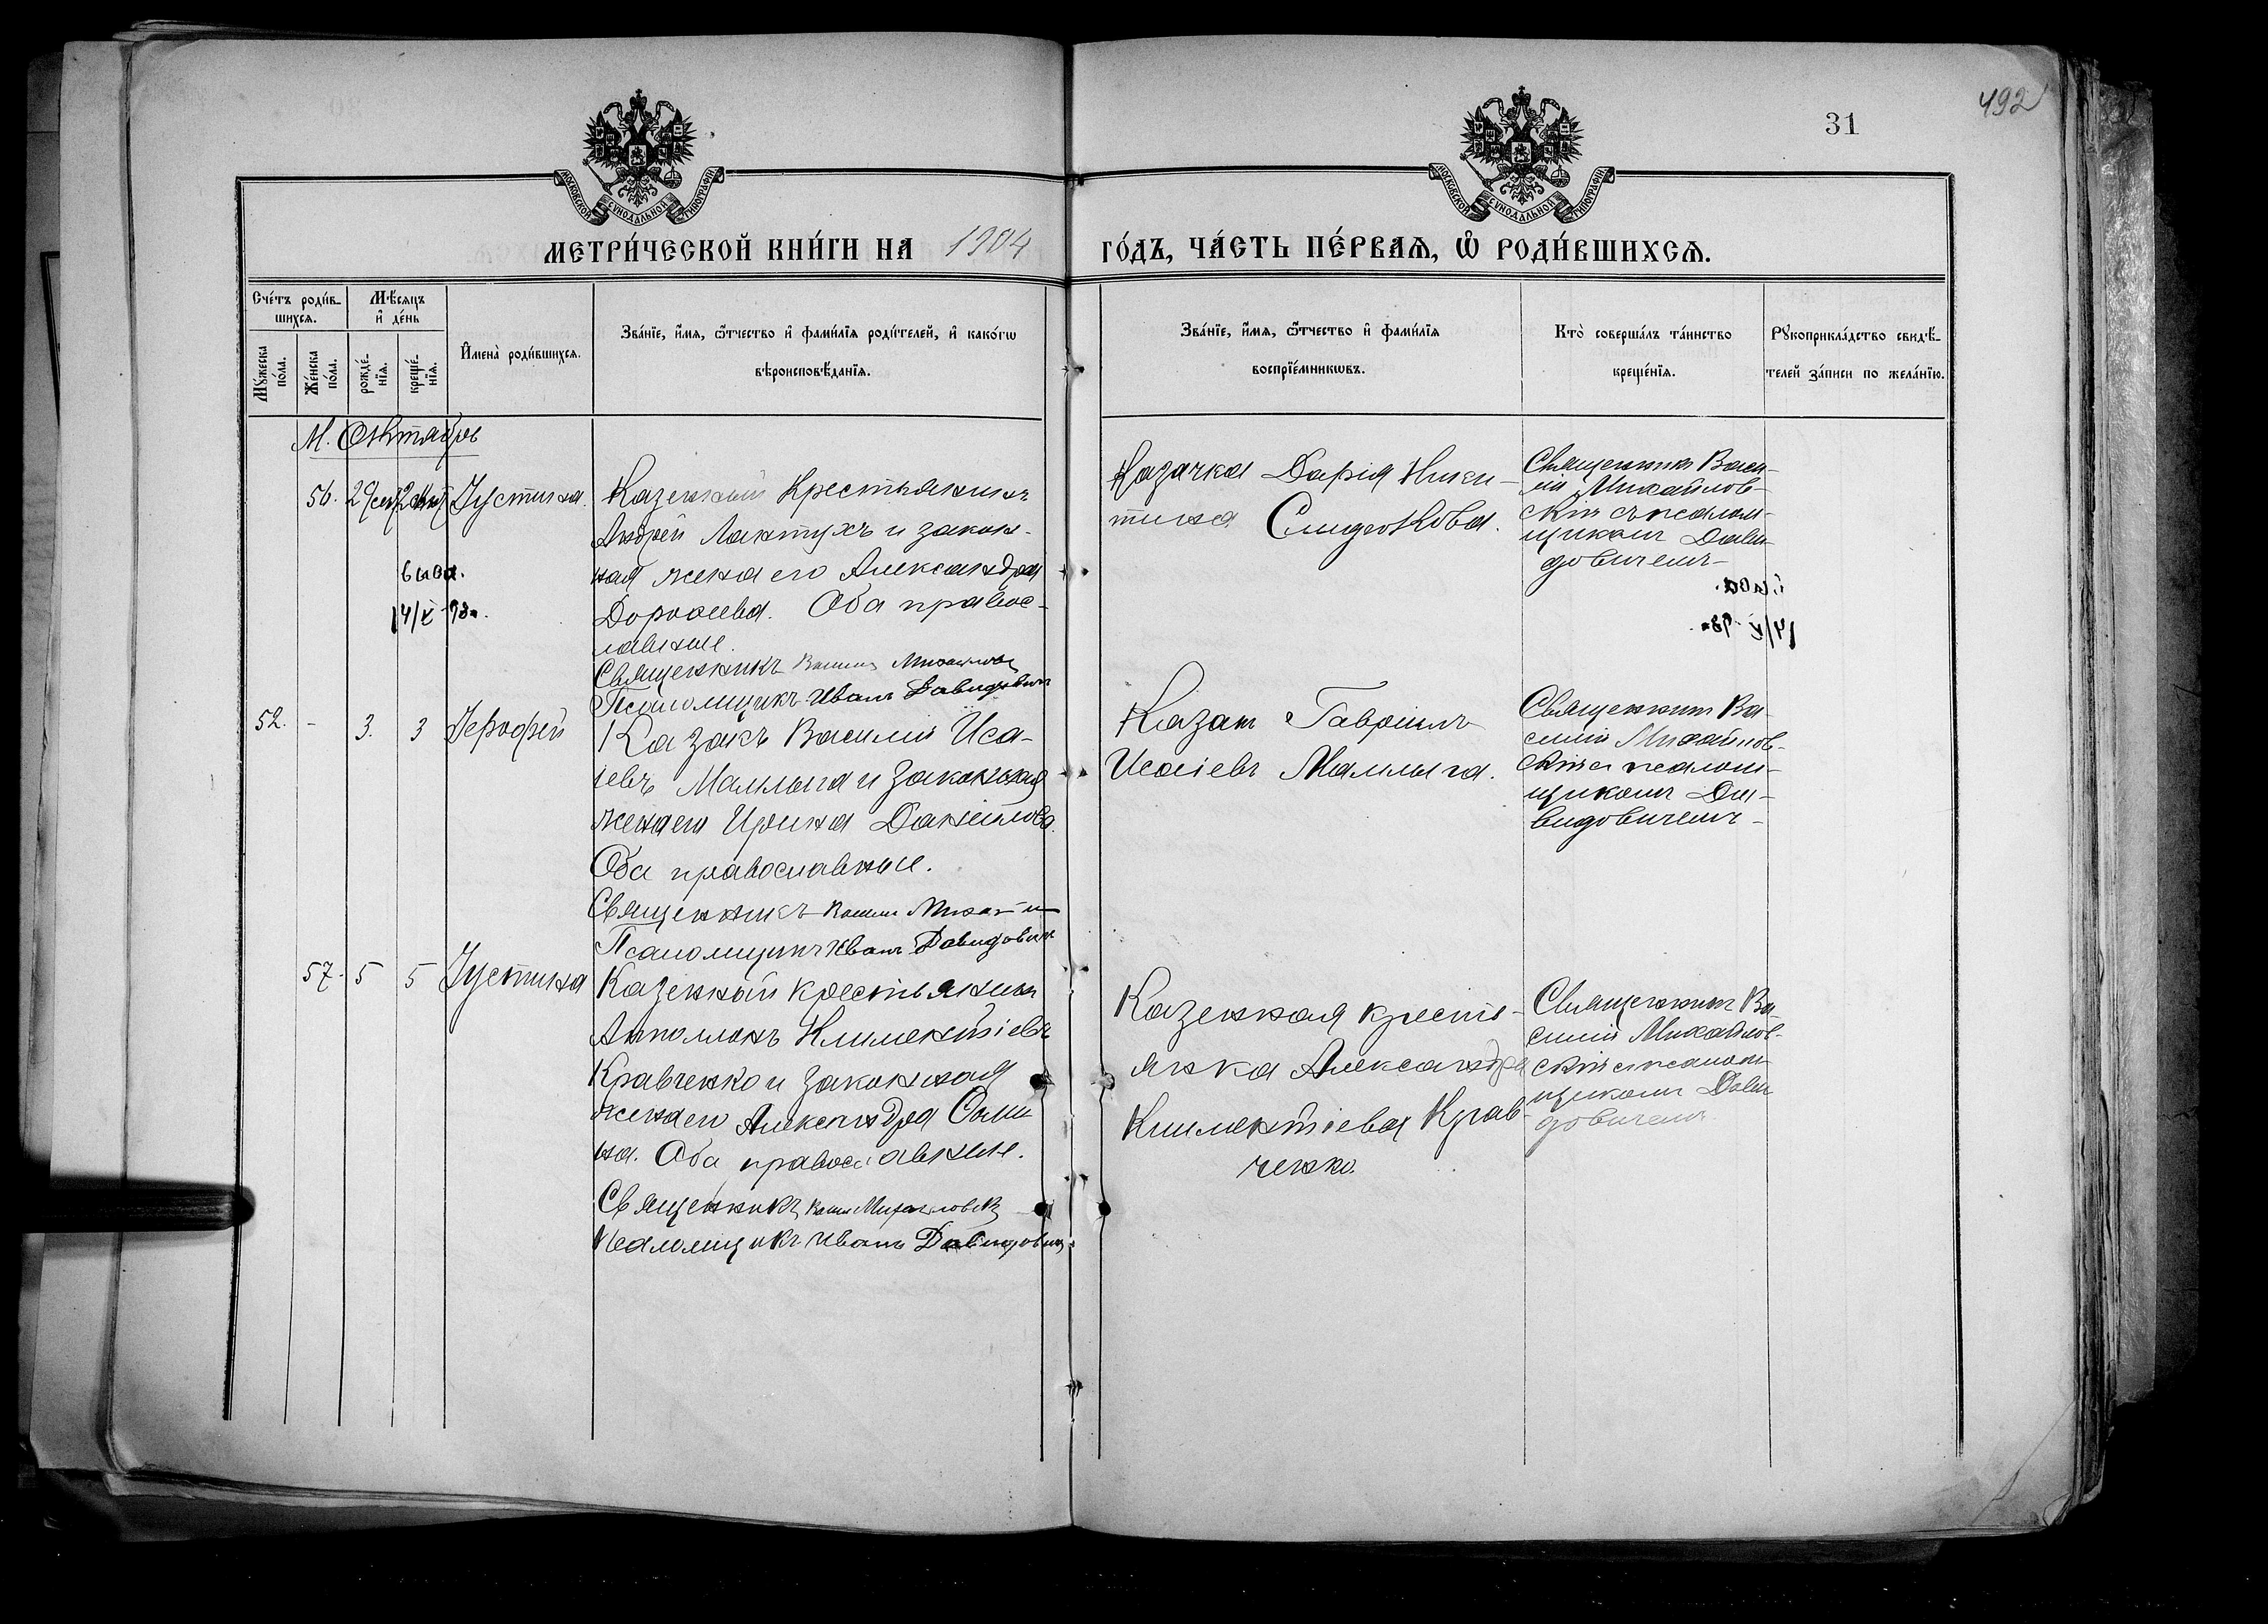 492
31
МОСКОВСКОЙ СѴНОДАЛЬНОЙ ТИПОГРАФІИ
МОСКОВСКОЙ СѴНОДАЛЬНОЙ ТИПОГРАФІИ
МЕТРИ́ЧЕСКОЙ КНИ́ГИ НА 1904
ГО́ДЪ, ЧА́СТЬ ПЕ́РВАѦ, Ѡ҆ РОДИ́ВШИХСѦ.
Сче́тъ роди́в-
шихсѧ.
Мѣ́сѧцъ
и҆ де́нь
Мꙋ́жеска
по́ла.
Же́нска
по́ла.
рожде́-
нїѧ.
креще́-
нїѧ.
И҆мена̀ роди́вшихсѧ.
Зва́нїе, и҆́мѧ, ѻ҆́тчество и҆ фами́лїѧ роди́телей, и҆ како́гѡ
вѣроисповѣ́данїѧ.
Зва́нїе, и҆́мѧ, ѻ҆́тчество и҆ фами́лїѧ
воспрїе́мникѡвъ.
Кто̀ соверша́лъ та́инство
креще́нїѧ.
Рꙋкоприкла́дство свидѣ́-
телей за́писи по жела́нїю.
М. Октябрь
56. 29 сен 2 окт Іустина
Казенный Крестьянинъ
Андрей Лактухъ и закон-
ная жена его Александра
Дорофеева. Оба правос-
лавные.
Священникъ Василій Михайловск
Псаломщикъ Иванъ Давидович
14/X 93
Казачка Дарія Ники-
тина Слидюкова.
Священникъ Васи-
лій Михайлов-
скій съ псалом-
щикомъ Дави-
довичемъ
52. - 3. 3 Іерофей
Казакъ Василій Иса-
іевъ Малмыга и законная
жена его Ирина Даніилова.
Оба православные.
Священникъ Василій
Псаломщикъ Иванъ Давидович
Казакъ Гавріилъ
Исаіевъ Малмыга.
Священникъ Ва-
силій Михайлов-
скій съ псалом-
щикомъ Да-
видовичемъ
57. 5 5 Іустина
Казенный крестьянинъ
Аполлонъ Климентіевъ
Кравченко и законная
жена его Александра
на. Оба православные.
Священникъ Васил Михайловск
Псаломщикъ Иванъ Давидович
Казенная кресть-
янка Александра
Климентіева Крав-
ченко.
Священникъ Ва-
силій Михайлов-
скій съ псалом-
щикомъ Дави-
довичемъ